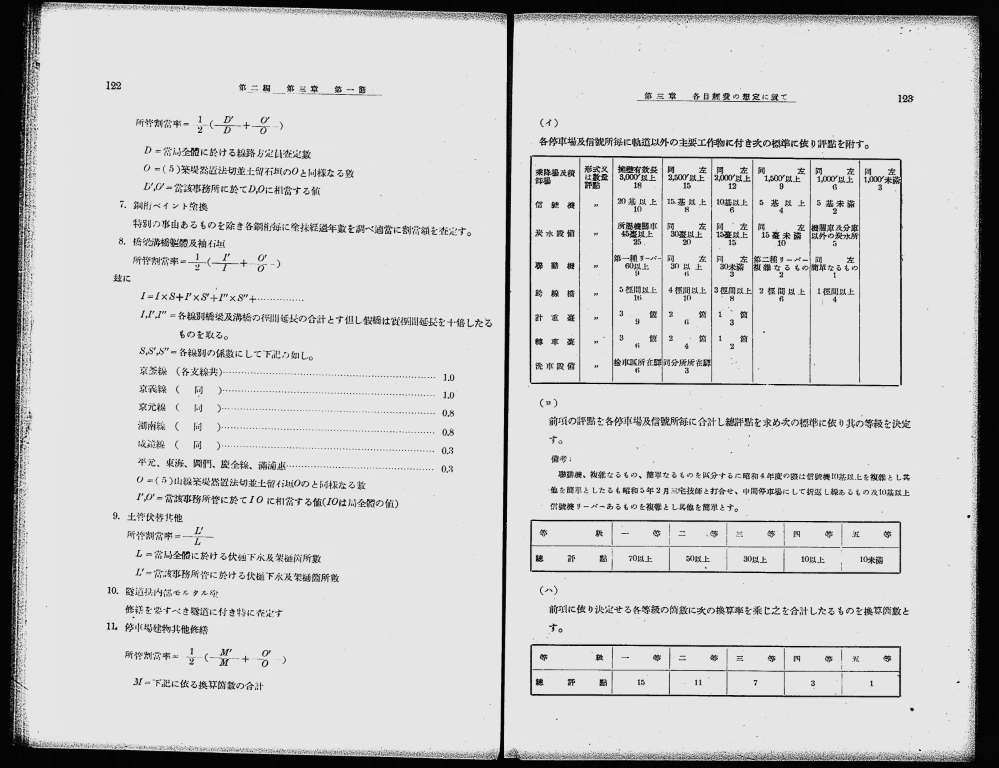 122
第二編 第三章 第一節
所管割當率= 1/2 ( D'/D + O'/O )
D=當局全體に於ける線路方定員査定數
O=(5)築堤崙置法切並土留石垣のOと同樣なる數
D',O'=當該事務所に於てD,Oに相當する値
7. 鋼桁ペイント塗換
特別の事由あるものを除き各鋼桁毎に塗抹經過年數を調べ適當に割當額を査定す。
8. 橋梁溝橋軀體及袖石垣
所管割當率= 1/2 ( I'/I + O'/O )
玆に
I=I×S+I'×S'+I''×S''+……………
I,I',I''=各線別橋梁及溝橋の徑間延長の合計とす但し假橋は實徑間延長を十倍したる
ものを取る。
S,S',S''=各線別の係數にして下記の如し。
京釜線 (各支線共)…………………………………… 1.0
京義線 ( 同 )…………………………………… 1.0
京元線 ( 同 )…………………………………… 0.8
湖南線 ( 同 )…………………………………… 0.8
咸鏡線 ( 同 )…………………………………… 0.3
平元、東海、圖們、慶全線、滿浦線…………………… 0.3
O=(5)山線築堤崙置法切並土留石垣のOと同樣なる數
I',O'=當該事務所管に於てI O に相當する値(IOは局全體の値)
9. 土管伏替其他
所管割當率= L'/L
L=當局全體に於ける伏樋下水及架樋箇所數
L'=當該事務所管に於ける伏樋下水及架樋箇所數
10. 隧道拱內部モルタル塗
修繕を要すべき隧道に付き特に査定す
11. 停車場建物其他修繕
所管割當率= 1/2 ( M'/M + O'/O )
M=下記に依る換算箇數の合計
第三章 各目經費の想定に就て
123
(イ)
各停車場及信號所毎に軌道以外の主要工作物に付き次の標準に依り評點を附す。
乘降場及積卸場 形式又は數量評點 擁壁有效長3,000'以上 18 同左2,500'以上 15 同左2,000'以上 12 同左1,500'以上 9 同左1,000'以上 6 同左1,000'未滿 3
信號機 〃 20基以上 10 15基以上 8 10基以上 6 5基以上 4 5基未滿 2
炭水設備 〃 所要機關車45臺以上 25 同左30臺以上 20 同左15臺以上 15 同左15臺未滿 10 機關庫及分庫以外の炭水所 5
聯動機 〃 第一種リーバー60以上 9 同左30以上 6 同左30未滿 3 第二種リーバー複雜なるもの 2 同左簡單なるもの 1
跨線橋 〃 5徑間以上 16 4徑間以上 10 3徑間以上 8 2徑間以上 6 1徑間以上 4
計重臺 〃 3箇 9 2箇 6 1箇 3
轉車臺 〃 3箇 6 2箇 4 1箇 2
洗車設備 〃 檢車區所在驛 6 同分所所在驛 3
(ロ)
前項の評點を各停車場及信號所毎に合計し總評點を求め次の標準に依り其の等級を決定
す。
備考:
聯動機、複雜なるもの、簡單なるものを區分するに昭和4年度の際は信號機10基以上を複雜とし其
他を簡單としたるも昭和5年2月三宅技師と打合せ、中間停車場にして折返し線あるもの及10基以上
信號機リーバーあるものを複雜とし其他を簡單とす。
等級 一等 二等 三等 四等 五等
總評點 70以上 50以上 30以上 10以上 10未滿
(ハ)
前項に依り決定せる各等級の箇數に次の換算率を乘じ之を合計したるものを換算箇數と
す。
等級 一等 二等 三等 四等 五等
總評點 15 11 7 3 1